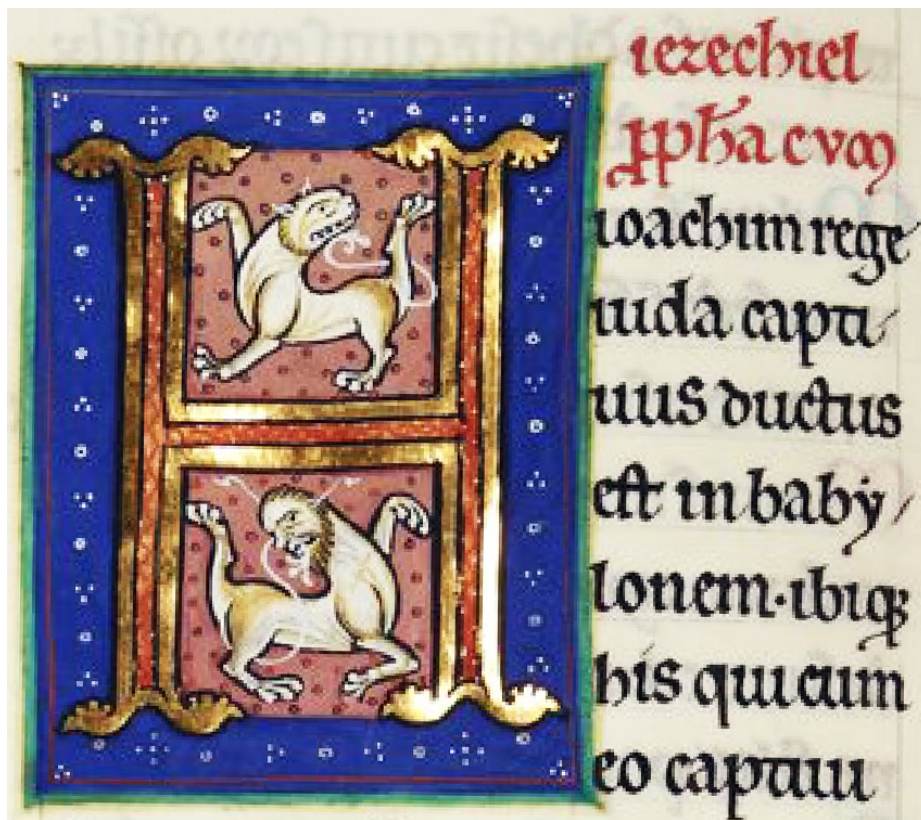 H
iezechiel
ppħa cvm
ioachim rege
iuda capti
uus ductus
est in baby
lonem·ibiqꝫ
his qui cum
eo captiui